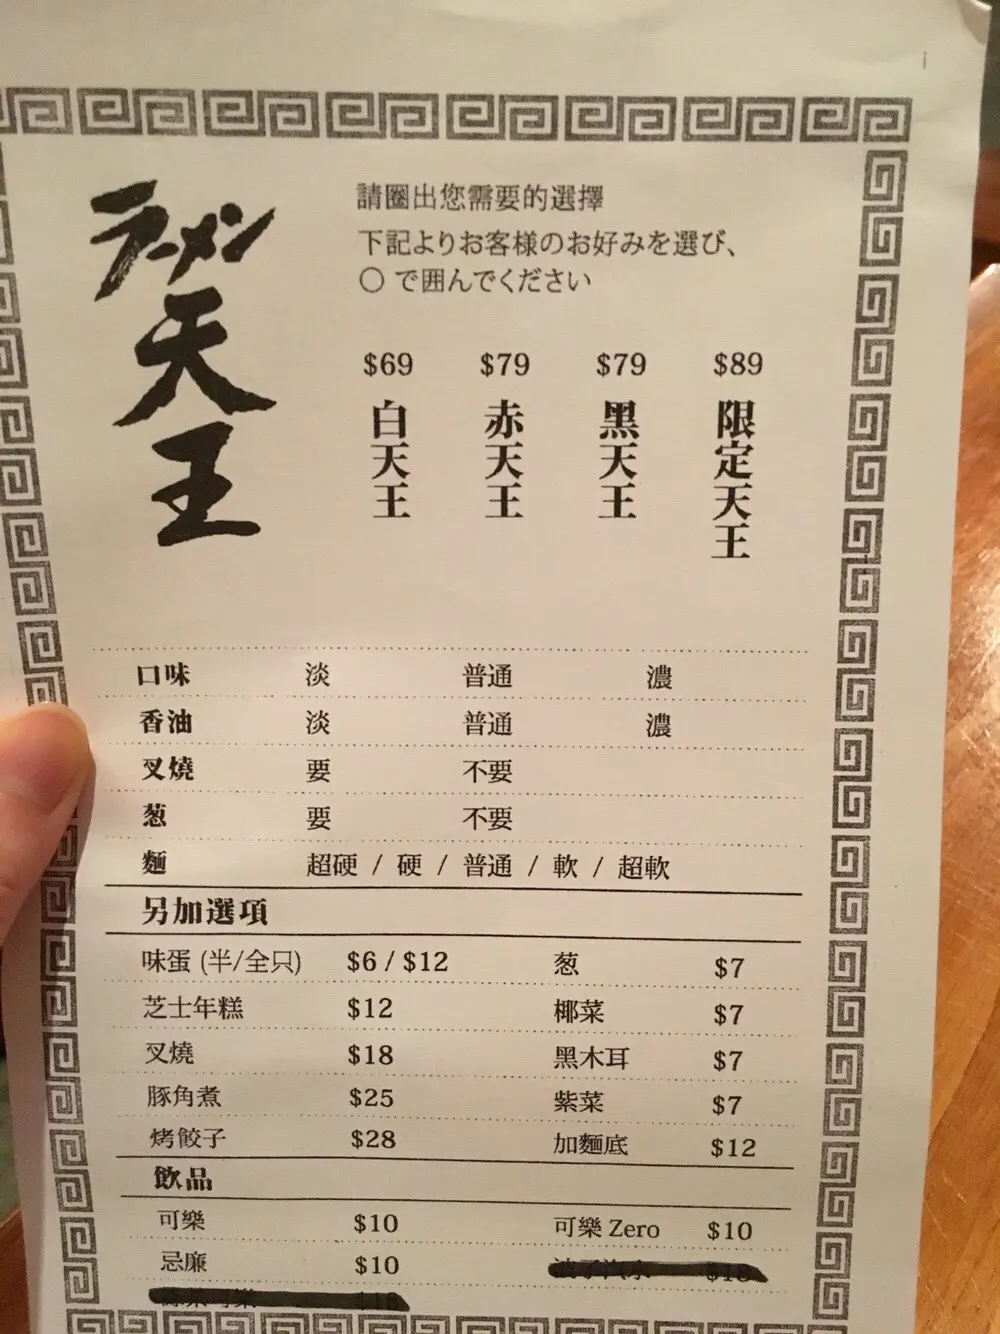 ラーメン
天王
請圈出您需要的選擇
下記よりお客様のお好みを選び、
〇 で囲んでください
$69 $79 $79 $89
白天王 赤天王 黑天王 限定天王
口味 淡 普通 濃
香油 淡 普通 濃
叉燒 要 不要
葱 要 不要
麵 超硬 / 硬 / 普通 / 軟 / 超軟
另加選項
味蛋 (半/全只) $6 / $12 葱 $7
芝士年糕 $12 椰菜 $7
叉燒 $18 黑木耳 $7
豚角煮 $25 紫菜 $7
烤餃子 $28 加麵底 $12
飲品
可樂 $10 可樂 Zero $10
忌廉 $10